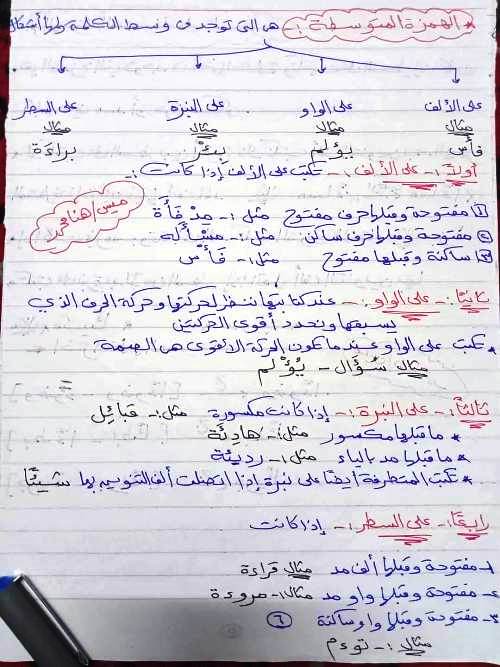 * الهمزة المتوسطة :- هى التى توجد فى وسط الكلمة ولها أشكال
على الألف على الواو على النبرة على السطر
مثال مثال مثال مثال
فأس يؤلم بئر براءة
أولاً :- على الألف :- تكتب على الألف إذا كانت :-
١ مفتوحة وقبلها حرف مفتوح مثل :- مدفأة
٢ مفتوحة وقبلها حرف ساكن مثل :- مسألة
٣ ساكنة وقبلها مفتوح مثل :- فأس
ميس / هناء
ثانيًا :- على الواو :- عند كتابتها ننظر لحركتها وحركة الحرف الذي
يسبقها ونحدد أقوى الحركتين
* تكتب على الواو عندما تكون الحركة الأقوى هى الضمة
مثال سُؤَال - يُؤْلم
ثالثًا :- على النبرة :- إذا كانت مكسورة مثل :- قبائِل
* ما قبلها مكسور مثل :- هادِئَة
* ما قبلها مد بالياء مثل :- رديئة
* تكتب المتطرفة أيضًا على نبرة إذا اتصلت ألف التنوين بها شيئًا
رابعًا :- على السطر :- إذا كانت
١- مفتوحة وقبلها ألف مد مثال قراءة
٢- مفتوحة وقبلها واو مد مثال :- مروءة
٣- مفتوحة وقبلها واو ساكنة ٦
مثال :- توءم